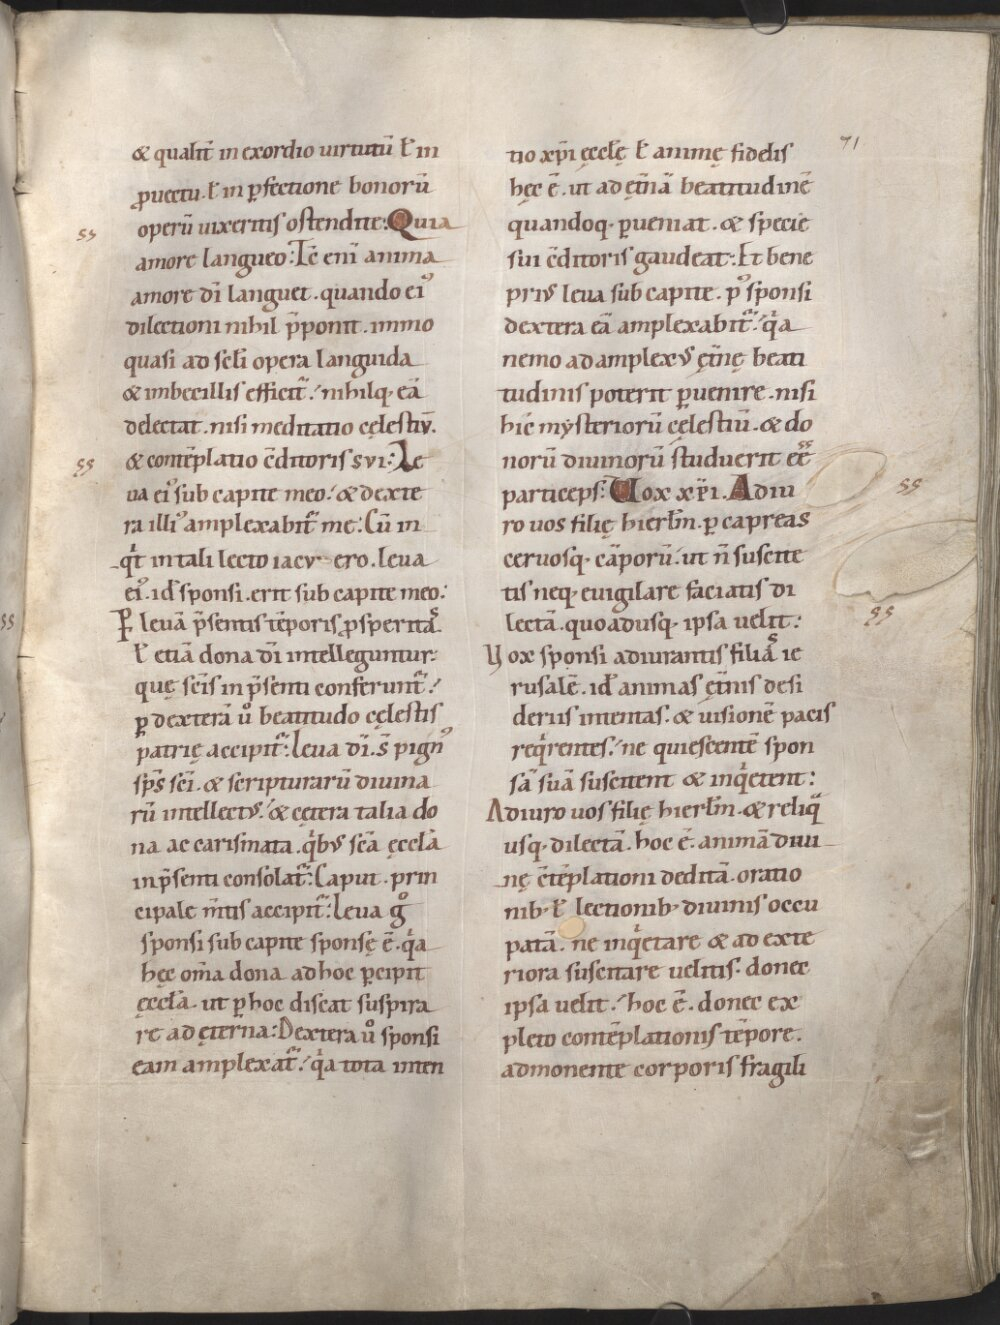 71
& qualit̄ in exordio uirtutū ł in
ꝓuectu. ł in ꝑfectione bonorū
operū uixeritis ostendite: Quia
amore langueo: Iē eni̅ anima
amore di̅ languet. quando ei᾿
dilectioni nihil p̄ponit. immo
quasi ad sc̅li opera languida
& imbecillis efficit᷑. nihilq; eā
delectat. nisi meditatio cęlestiū.
& contēplatio c̄ditoris sui: Le
ua ei᾿ sub capite meo. & dexte
ra illi᾿ amplexabit᷑ me: Cū in
qͥt in tali lecto iacu ero. leua
ei᾿. id ē sponsi. erit sub capite meo.
P levā p̄sentis tēporis ꝓsperitaͣs
ł etiā dona di̅ intelleguntur:
quę sc̅is in p̄senti conferunt᷑.
ꝑ dexterā ů beatitudo cęlestis
patrię accipit᷑: Leua di̅. s̄ pign᾿
sp̅s sc̅i. & scripturarū diuina
rū intellectus. & cętera talia do
na ac carismata. qͥbus sc̅a ęccła
in p̄senti consolat᷑: Caput. prin
cipale m̄tis accipit᷑: Leua g̊
sponsi sub capite sponsę ē. qͥa
hęc om̅a dona ad hoc ꝑcipit
ęccła. ut ꝑ hoc discat suspira
re ad ęterna: Dextera ů sponsi
eam amplexat᷑. qͥa tota inten
tio xp̅i ęccłę ł animę fidelis
hęc ē. ut ad ęt̄nā beatitudinē
quandoq; ꝑueniat. & specie
sui c̄ditoris gaudeat: Et bene
prius leua sub capite. p᾿ sponsi
dextera eā amplexabit᷑. qͥa
nemo ad amplexus ęt̄nę beati
tudinis poterit ꝑuenire. nisi
hic mẏsteriorū cęlestiū. & do
norū diuinorū studuerit eē
particeps: Uox xp̅i. Adiu
ro uos filię hierłm. ꝑ capreas
ceruosq; cāporū. ut n̄ suscite
tis neq; euigilare faciatis di
lectā. quoadusq; ipsa uelit:
Uox sponsi adiurantis filiaͣs ie
rusalē. id ē animas ęt̄nis desi
deriis intentas. & uisionē pacis
reqͥrentes. ne quiescentē spon
sā suā suscitent & inqͥetent:
Adiuro uos filię hierłm. & reliqͣ
usq; dilectā. hoc ē. animā diui
nę c̄tēplationi deditā. oratio
nib; ł lectionib; diuinis occu
patā. ne inqͥetare & ad exte
riora suscitare uelitis. donec
ipsa uelit. hoc ē. donec ex
pleto contēplationis tēpore.
admonente corporis fragili